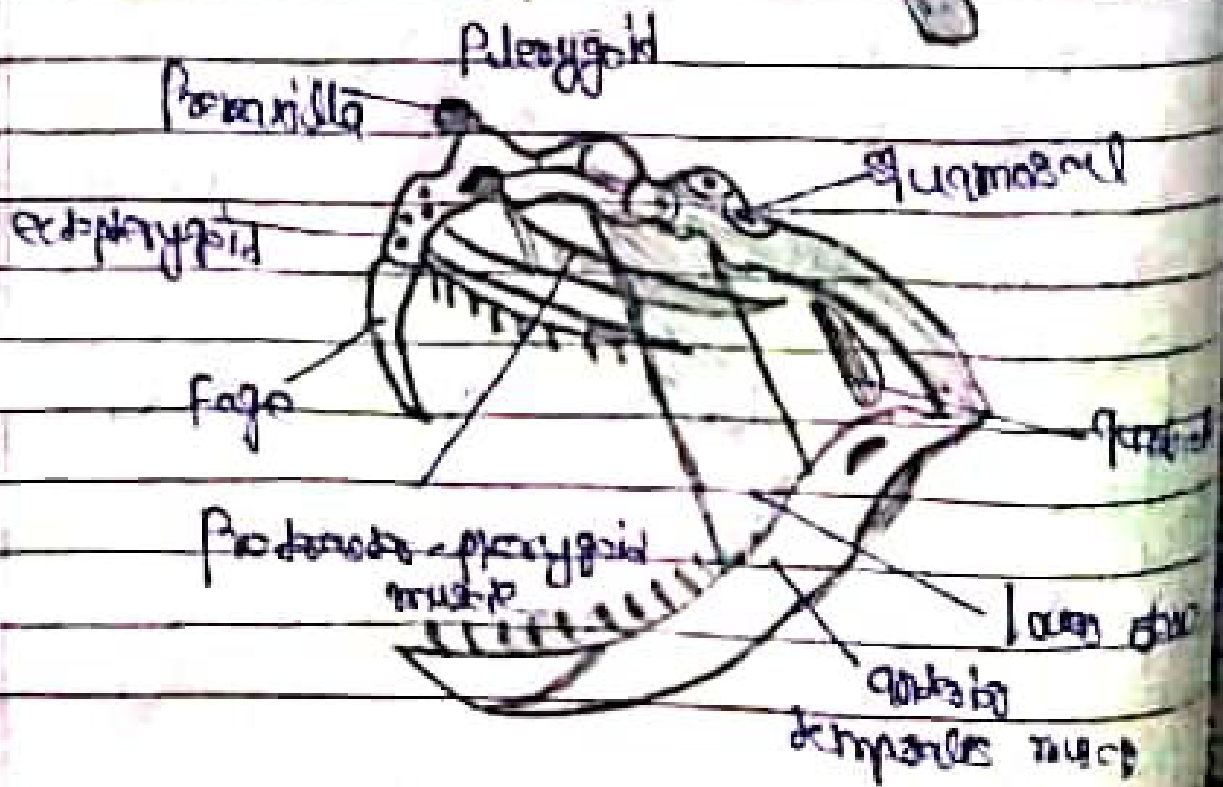 Pterygoid
Premaxilla
Squamosal
ectopterygoid
Fags
Protracto-pterygoid
muscle
lower
temporalis